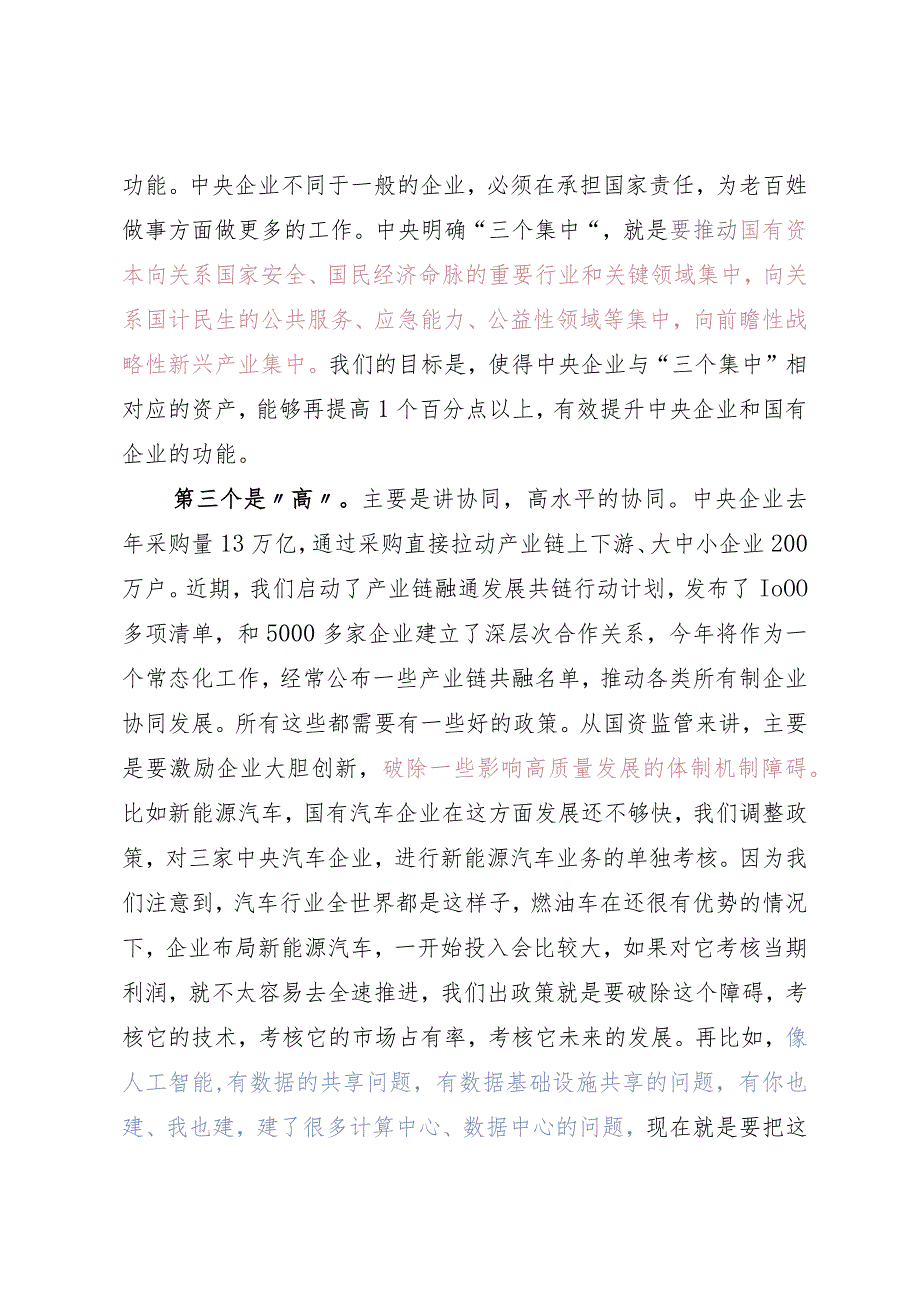 功能。中央企业不同于一般的企业，必须在承担国家责任，为老百姓
做事方面做更多的工作。中央明确“三个集中“，就是要推动国有资
本向关系国家安全、国民经济命脉的重要行业和关键领域集中，向关
系国计民生的公共服务、应急能力、公益性领域等集中，向前瞻性战
略性新兴产业集中。我们的目标是，使得中央企业与“三个集中”相
对应的资产，能够再提高 1 个百分点以上，有效提升中央企业和国有
企业的功能。
第三个是〃高〃。主要是讲协同，高水平的协同。中央企业去
年采购量 13 万亿，通过采购直接拉动产业链上下游、大中小企业 200
万户。近期，我们启动了产业链融通发展共链行动计划，发布了 IoOO
多项清单，和 5000 多家企业建立了深层次合作关系，今年将作为一
个常态化工作，经常公布一些产业链共融名单，推动各类所有制企业
协同发展。所有这些都需要有一些好的政策。从国资监管来讲，主要
是要激励企业大胆创新，破除一些影响高质量发展的体制机制障碍。
比如新能源汽车，国有汽车企业在这方面发展还不够快，我们调整政
策，对三家中央汽车企业，进行新能源汽车业务的单独考核。因为我
们注意到，汽车行业全世界都是这样子，燃油车在还很有优势的情况
下，企业布局新能源汽车，一开始投入会比较大，如果对它考核当期
利润，就不太容易去全速推进，我们出政策就是要破除这个障碍，考
核它的技术，考核它的市场占有率，考核它未来的发展。再比如，像
人工智能,有数据的共享问题，有数据基础设施共享的问题，有你也
建、我也建，建了很多计算中心、数据中心的问题，现在就是要把这